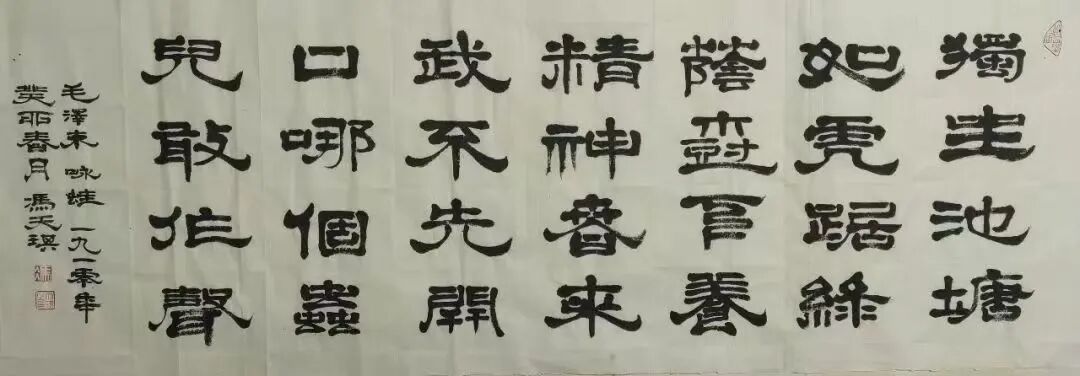 獨坐池塘
如虎踞綠
蔭樹下養
精神春來
我不先開
口哪個蟲
兒敢作聲
毛澤東 咏蛙 一九一零年
癸卯春月 馮天琪